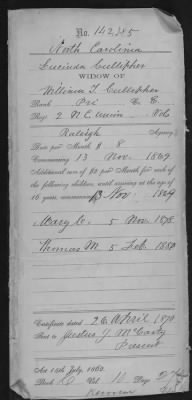 No. 142285
North Carolina
Lucinda Cullipher
WIDOW OF
William T. Cullipher
Rank Pri C. E.
Regt 2 N.C. Union Vols
Raleigh Agency
Rate per Month $ 8
Commencing 13 Nov. 1869
Additional sum of $2 per Month for each of
the following children, until arriving at the age of
16 years, commencing 13 Nov. 1869
Mary C. 5 Nov. 1878
Thomas M. 5 Feb. 1880
Certificate dated 26 April 1870
Sent to Justus J. McCarty
Present
Act 14th July, 1862.
Book Vol. Page